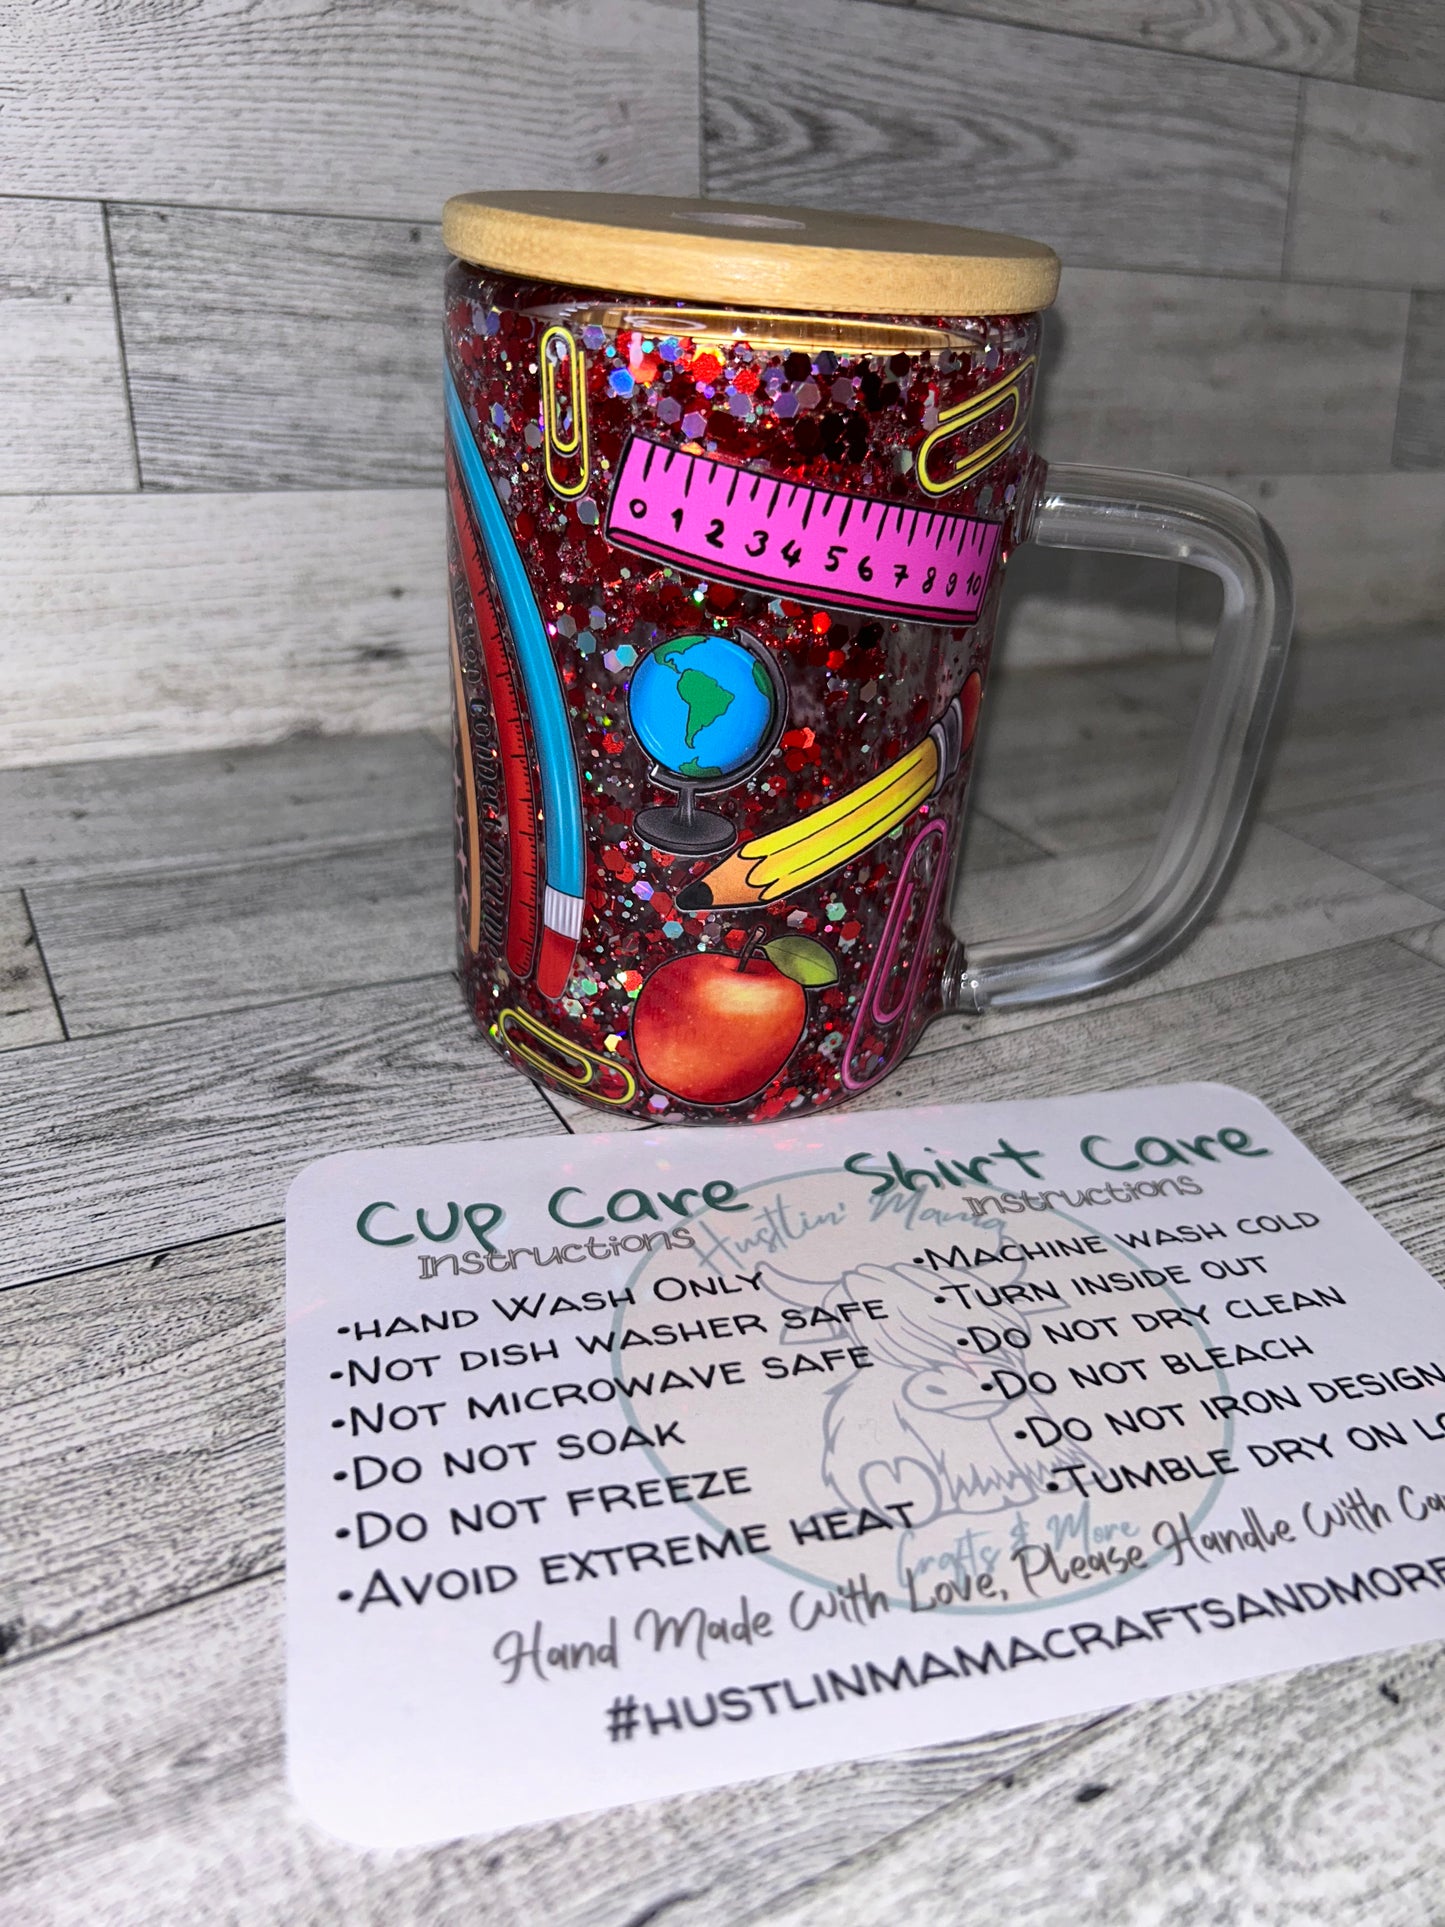 0 1 2 3 4 5 6 7 8 9 10
Cup Care
Instructions
•HAND WASH ONLY
•NOT DISH WASHER SAFE
•NOT MICROWAVE SAFE
•DO NOT SOAK
•DO NOT FREEZE
•AVOID EXTREME HEAT
Shirt Care
Instructions
•MACHINE WASH COLD
•TURN INSIDE OUT
•DO NOT DRY CLEAN
•DO NOT BLEACH
•DO NOT IRON DESIGN
•TUMBLE DRY ON
Hustlin' Mama
Crafts & More
Hand Made With Love, Please Handle With
#HUSTLINMAMACRAFTSANDMORE